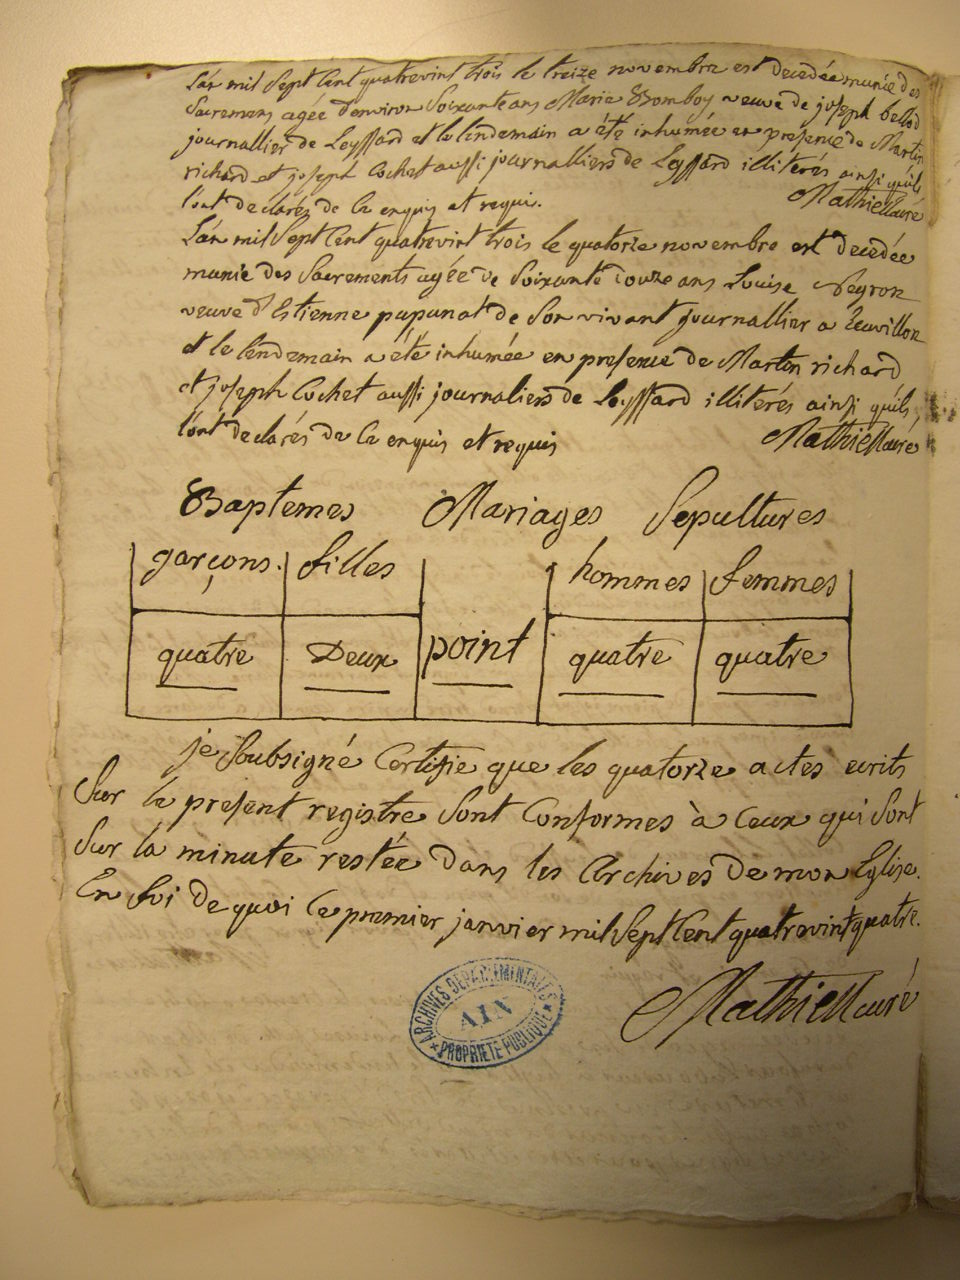 L'an mil sept cent quatrevint trois le treize novembre est decedée munie des
Sacremens agée d'environ Soixante ans Marie Bomboy veuve de joseph bellod
journallier de Leyssard et le lendemain a été inhumée en presence de Martin
richard et joseph Cochet aussi journalliers de Leyssard illiterés ainsi quils
l'ont declarés de ce enquis et requis. Mathieu curé
L'an mil Sept Cent quatrevint trois le quatorze novembre est decedée
munie des Sacrements agée de Soixante douze ans Louise Neyron
veuve d'Estienne papunat de Son vivant journallier a
et le lendemain a été inhumée en presence de Martin richard
et joseph Cochet aussi journaliers de Leyssard illiterés ainsi quils
l'ont declarés de ce enquis et requis Mathieu curé
Baptemes Mariages Sepultures
garçons. filles hommes femmes
quatre Deux point quatre quatre
je Soubsigné Certifie que les quatorze actes ecrits
Sur le present registre Sont Conformes à Ceux qui Sont
Sur la minute restée dans les Archives de mon Eglise.
En foi de quoi Ce premier janvier mil Sept Cent quatrevint quatre.
Mathieu curé
ARCHIVES DEPARTEMENTALES
AIN
PROPRIETE PUBLIQUE